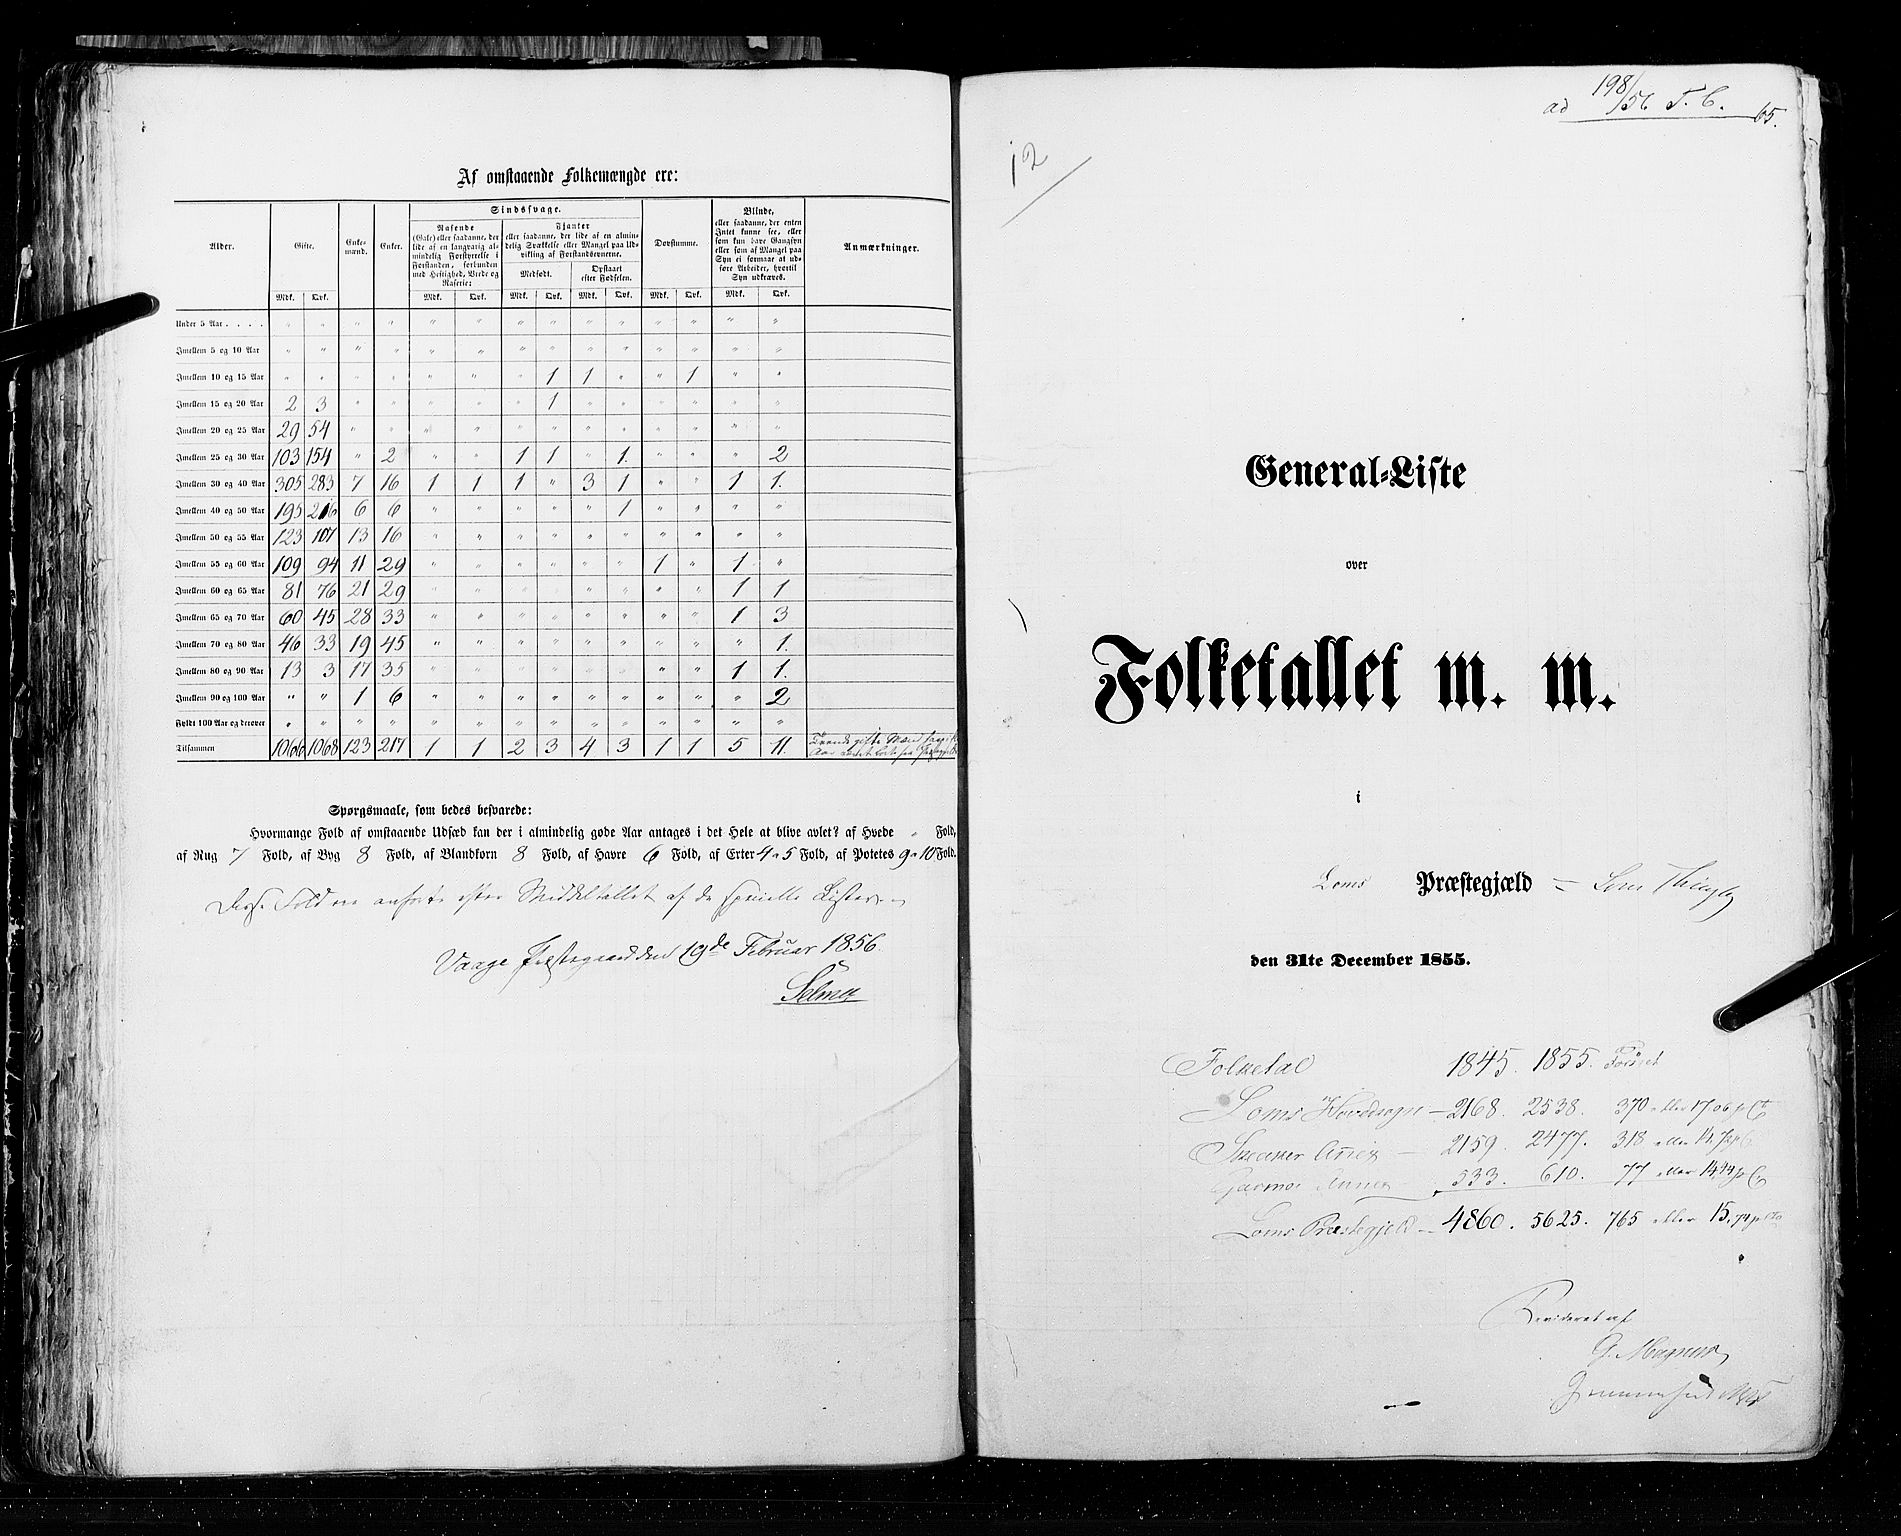 Af omstaaende Folkemængde ere:
Alder. | Gifte. | Enkemænd. | Enker. | Sindssvage. | Døvstumme. | Blinde, eller saadanne, der enten Intet kunne see, eller som kun have Gangsyn eller som af Mangel paa Syn ei formaae at udføre Arbeider, hvortil Syn udkræves. | Anmærkninger.
Rasende (Gale) eller saadanne, der lide af en langvarig almindelig Forstyrrelse i Forstanden, forbunden med Heftighed, Vrede og Raserie: | Fjanter eller saadanne, der lide af en almindelig Svækkelse eller Mangel paa Udvikling af Forstandsevnerne.
Medfødt. | Opstaaet efter Fødselen.
Mdk. | Qvk. | Mdk. | Qvk. | Mdk. | Qvk. | Mdk. | Qvk. | Mdk. | Qvk. | Mdk. | Qvk.
Under 5 Aar . . . . " " " " " " " " " " " " " "
Imellem 5 og 10 Aar " " " " " " " " " " " " " "
Imellem 10 og 15 Aar " " " " " " " 1 1 " " 1 " "
Imellem 15 og 20 Aar 2 3 " " " " " 1 " " " " " "
Imellem 20 og 25 Aar 29 54 " " " " " " " " " " " "
Imellem 25 og 30 Aar 103 154 " 2 " " 1 1 " 1. " " " 2
Imellem 30 og 40 Aar 305 283 7 16 1 1 1 " 3 1 " " 1 1.
Imellem 40 og 50 Aar 195 216 6 6 " " " " " 1 " " " "
Imellem 50 og 55 Aar 123 107 13 16 " " " " " " " " " "
Imellem 55 og 60 Aar 109 94 11 29 " " " " " " 1 " 1 "
Imellem 60 og 65 Aar 81 76 21 29 " " " " " " " " 1 1
Imellem 65 og 70 Aar 60 45 28 33 " " " " " " " " 1 3
Imellem 70 og 80 Aar 46 33 19 45 " " " " " " " " " 1.
Imellem 80 og 90 Aar 13 3 17 35 " " " " " " " " 1 1.
Imellem 90 og 100 Aar " " 1 6 " " " " " " " " " 2
Fyldt 100 Aar og derover " " " " " " " " " " " " " "
Tilsammen 1066 1068 123 217 1 1 2 3 4 3 1 1 5 11. gifte Mænd
Spørgsmaale, som bedes besvarede:
Hvormange Fold af omstaaende Udsæd kan der i almindelig gode Aar antages i det Hele at blive avlet? af Hvede " Fold,
af Rug 7 Fold, af Byg 8 Fold, af Blandkorn 8 Fold, af Havre 6 Fold, af Erter 4 a 5 Fold, af Potetes 9 a 10 Fold.
Disse Fold ere anførte efter Middeltallet af de specielle Lister.
Vaage Præstegaard den 19de Februar 1856.
Selmer
ad 198/56 F. C. 65.
12
General-Liste
over
Folketallet m. m.
i
Loms Præstegjæld = Lom
den 31te December 1855.
Folketal 1845. 1855. Forøget
Loms Hovedsogn – 2168. 2538. 370 eller 17,06 pCt
Skeaker Annex – 2159. 2477. 318 eller 14,72 pC
Garmos Annex 533. 610. 77 eller 14,44 pC
Loms Præstegjeld – 4860. 5625. 765 eller 15,74 pCto
Revideret af
G. Magnus